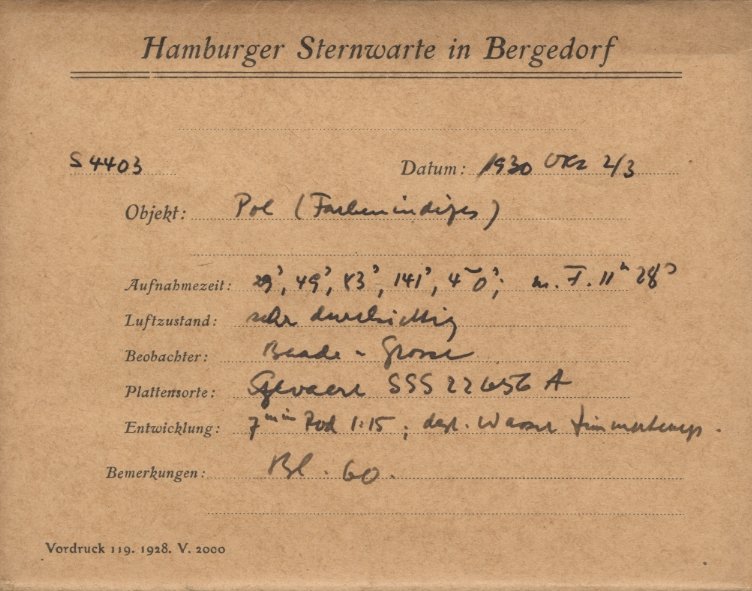 Hamburger Sternwarte in Bergedorf
S 4403 Datum: 1930 Okt 2/3
Objekt: Pol (Farbenindizes)
Aufnahmezeit: 29ˢ, 49ˢ, 83ˢ, 141ˢ, 4ᵐ0ˢ; m. F. 11ᵐ 28ˢ
Luftzustand: sehr durchsichtig
Beobachter: Baade - Grosse
Plattensorte: Gevaert SSS 22656 A
Entwicklung: 7ᵐⁱⁿ Rod 1:15; dest. Wasser Zimmertemp.
Bemerkungen: Bl. 60.
Vordruck 119. 1928. V. 2000